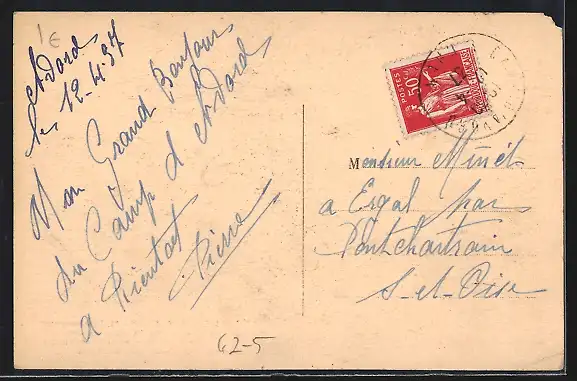 1 E
Avord
les 12-4-37
Mon Grand Bonjour
du Camp d'Avord
a Bientot
Pierre
62-5
POSTES
50c
M
Monsieur Minét
a Ergal par
Pontchartrain
S-et-Oise